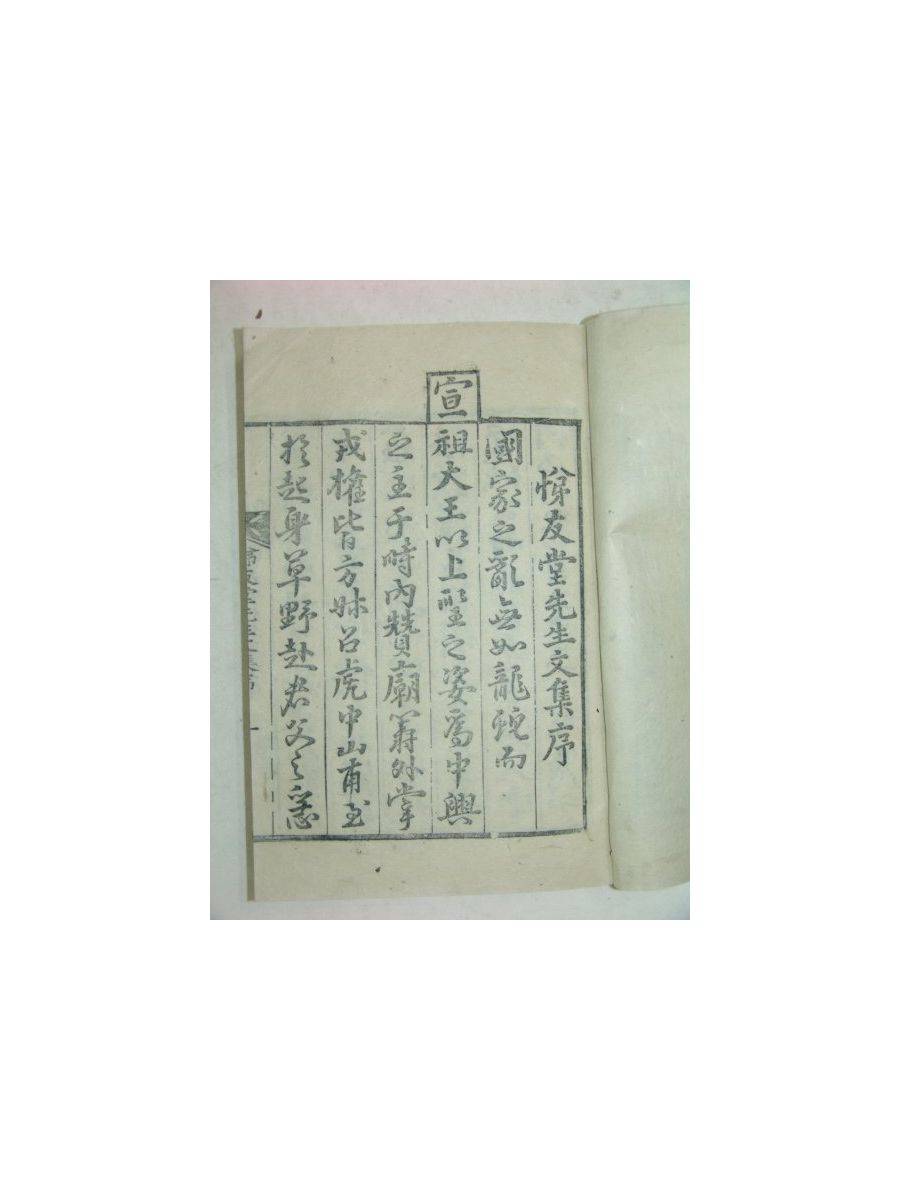 悌友堂先生文集序
國家之亂無如龍蛇而
宣祖大王以上聖之姿爲中興
之主于時內贊廟籌外掌
戎權皆方姝召虎中山甫至
於起身草野赴君父之急